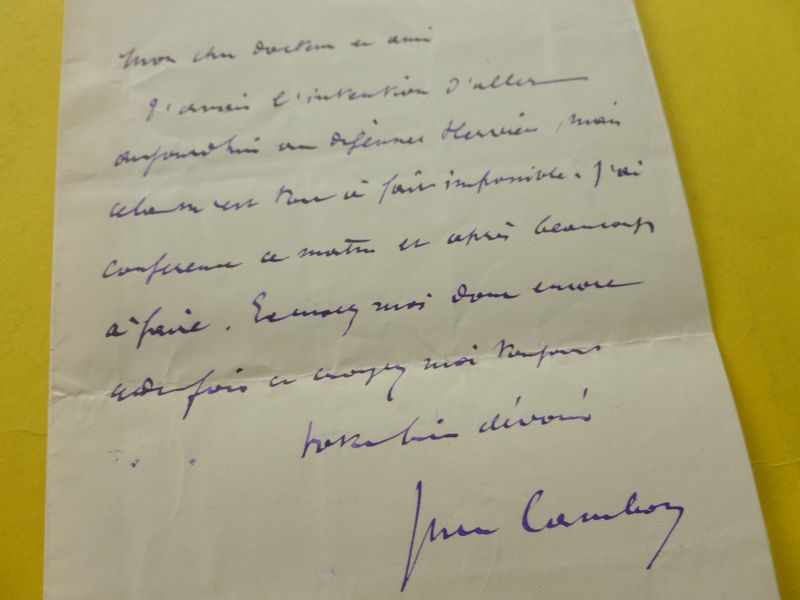 Mon cher docteur et ami
J'avais l'intention d'aller
aujourd'hui au déjeuner Hervieu, mais
cela m'est tout à fait impossible. J'ai
conférence ce matin et après beaucoup
à faire. Excusez moi donc encore
cette fois et croyez moi toujours
votre bien dévoué
Jules Cambon